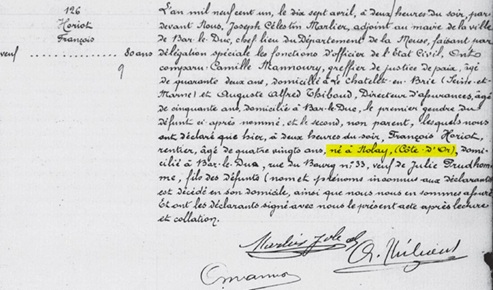 126
Horiot
François
veuf
80 ans
9
L'an mil neuf cent un, le dix sept avril, à deux heures du soir, par
devant Nous, Joseph Célestin Marlier, adjoint au maire de la ville
de Bar-le-Duc, chef lieu du Département de la Meuse, faisant par
délégation spéciale les fonctions d'officier de l'État Civil. Ont
comparu Camille Mannoury, greffier de justice de paix, âgé
de quarante deux ans, domicilié à Le Chatelet-en-Brie (Seine-et-
Marne) et Auguste Alfred Thibaud, Directeur d'assurances, âgé
de cinquante ans, domicilié à Bar-le-Duc, le premier gendre du
défunt ci après nommé, et le second, non parent, lesquels nous
ont déclaré que hier, à deux heures du soir, François Horiot,
rentier, âgé de quatre vingts ans, né à Nolay, (Côte-d'Or), domi-
cilié à Bar-le-Duc, rue du Bourg n° 33, veuf de Julie Prudhom-
me, fils des défunts (nom et prénoms inconnus aux déclarants)
est décédé en son domicile, ainsi que nous nous en sommes assuré
et ont les déclarants signé avec nous le présent acte après lecture
et collation.